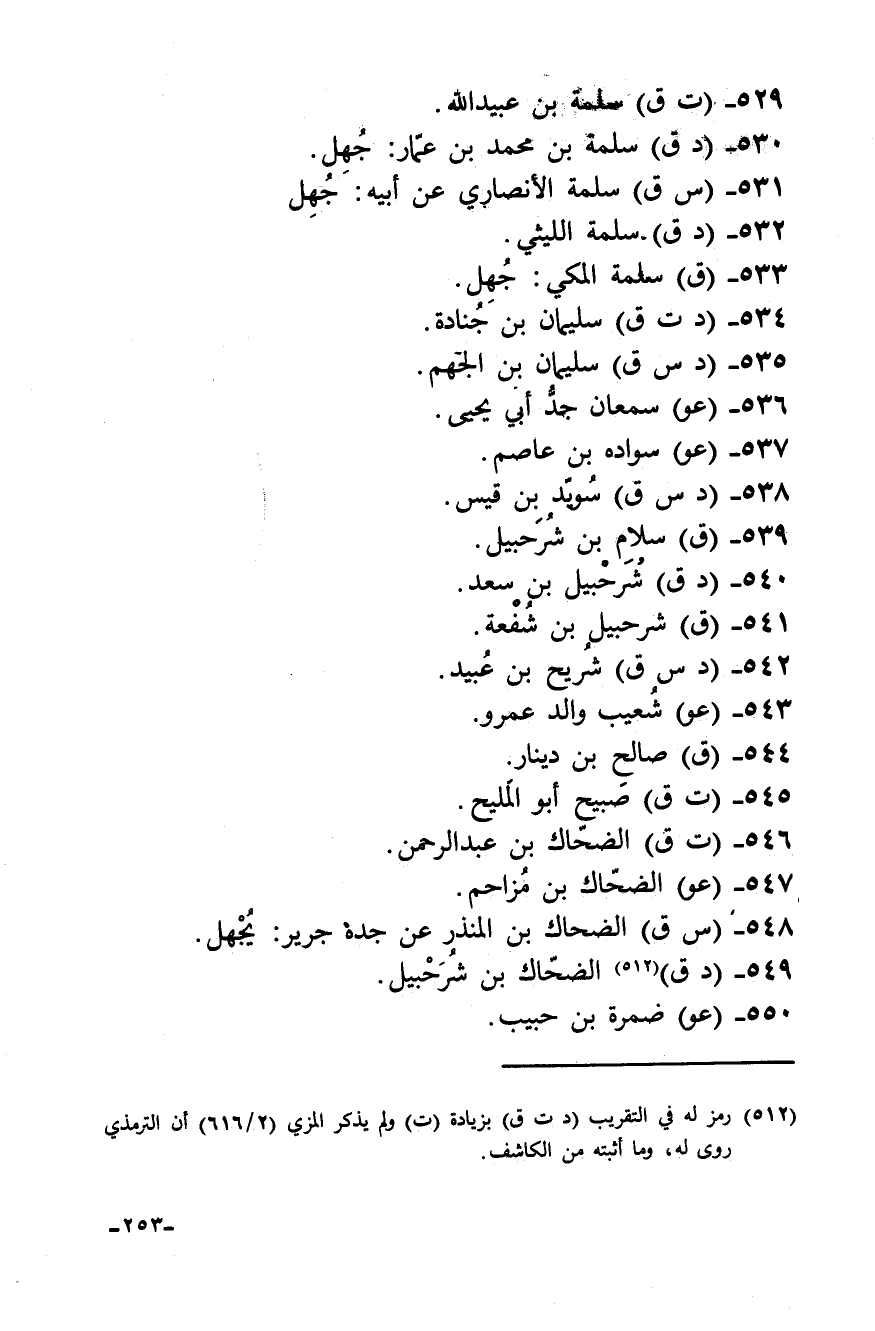 ٥٢٩ـ (ت ق) سلمة بن عبيدالله.
٥٣٠ـ (د ق) سلمة بن محمد بن عمّار: جُهِل.
٥٣١ـ (س ق) سلمة الأنصاري عن أبيه: جُهِل
٥٣٢ـ (د ق) سلمة الليثي.
٥٣٣ـ (ق) سلمة المكي: جُهِل.
٥٣٤ـ (د ت ق) سليمان بن جُنادة.
٥٣٥ـ (د س ق) سليمان بن الجَهم.
٥٣٦ـ (عو) سمعان جدُّ أبي يحيى.
٥٣٧ـ (عو) سواده بن عاصم.
٥٣٨ـ (د س ق) سُويّد بن قيس.
٥٣٩ـ (ق) سلام بن شُرَحبيل.
٥٤٠ـ (د ق) شُرَحْبيل بن سعد.
٥٤١ـ (ق) شرحبيل بن شُفْعة.
٥٤٢ـ (د س ق) شُريح بن عُبيد.
٥٤٣ـ (عو) شُعيب والد عمرو.
٥٤٤ـ (ق) صالح بن دينار.
٥٤٥ـ (ت ق) صَبيح أبو المَليح.
٥٤٦ـ (ت ق) الضحّاك بن عبدالرحمن.
٥٤٧ـ (عو) الضحّاك بن مُزاحم.
٥٤٨ـ (س ق) الضحاك بن المنذر عن جدهْ جرير: يُجْهل.
٥٤٩ـ (د ق)(٥١٢) الضحّاك بن شُرَحْبيل.
٥٥٠ـ (عو) ضمرة بن حبيب.
(٥١٢) رمز له في التقريب (د ت ق) بزيادة (ت) ولم يذكر المزي (٦١٦/٢) أن الترمذي
روى له، وما أثبته من الكاشف.
ـ٢٥٣ـ